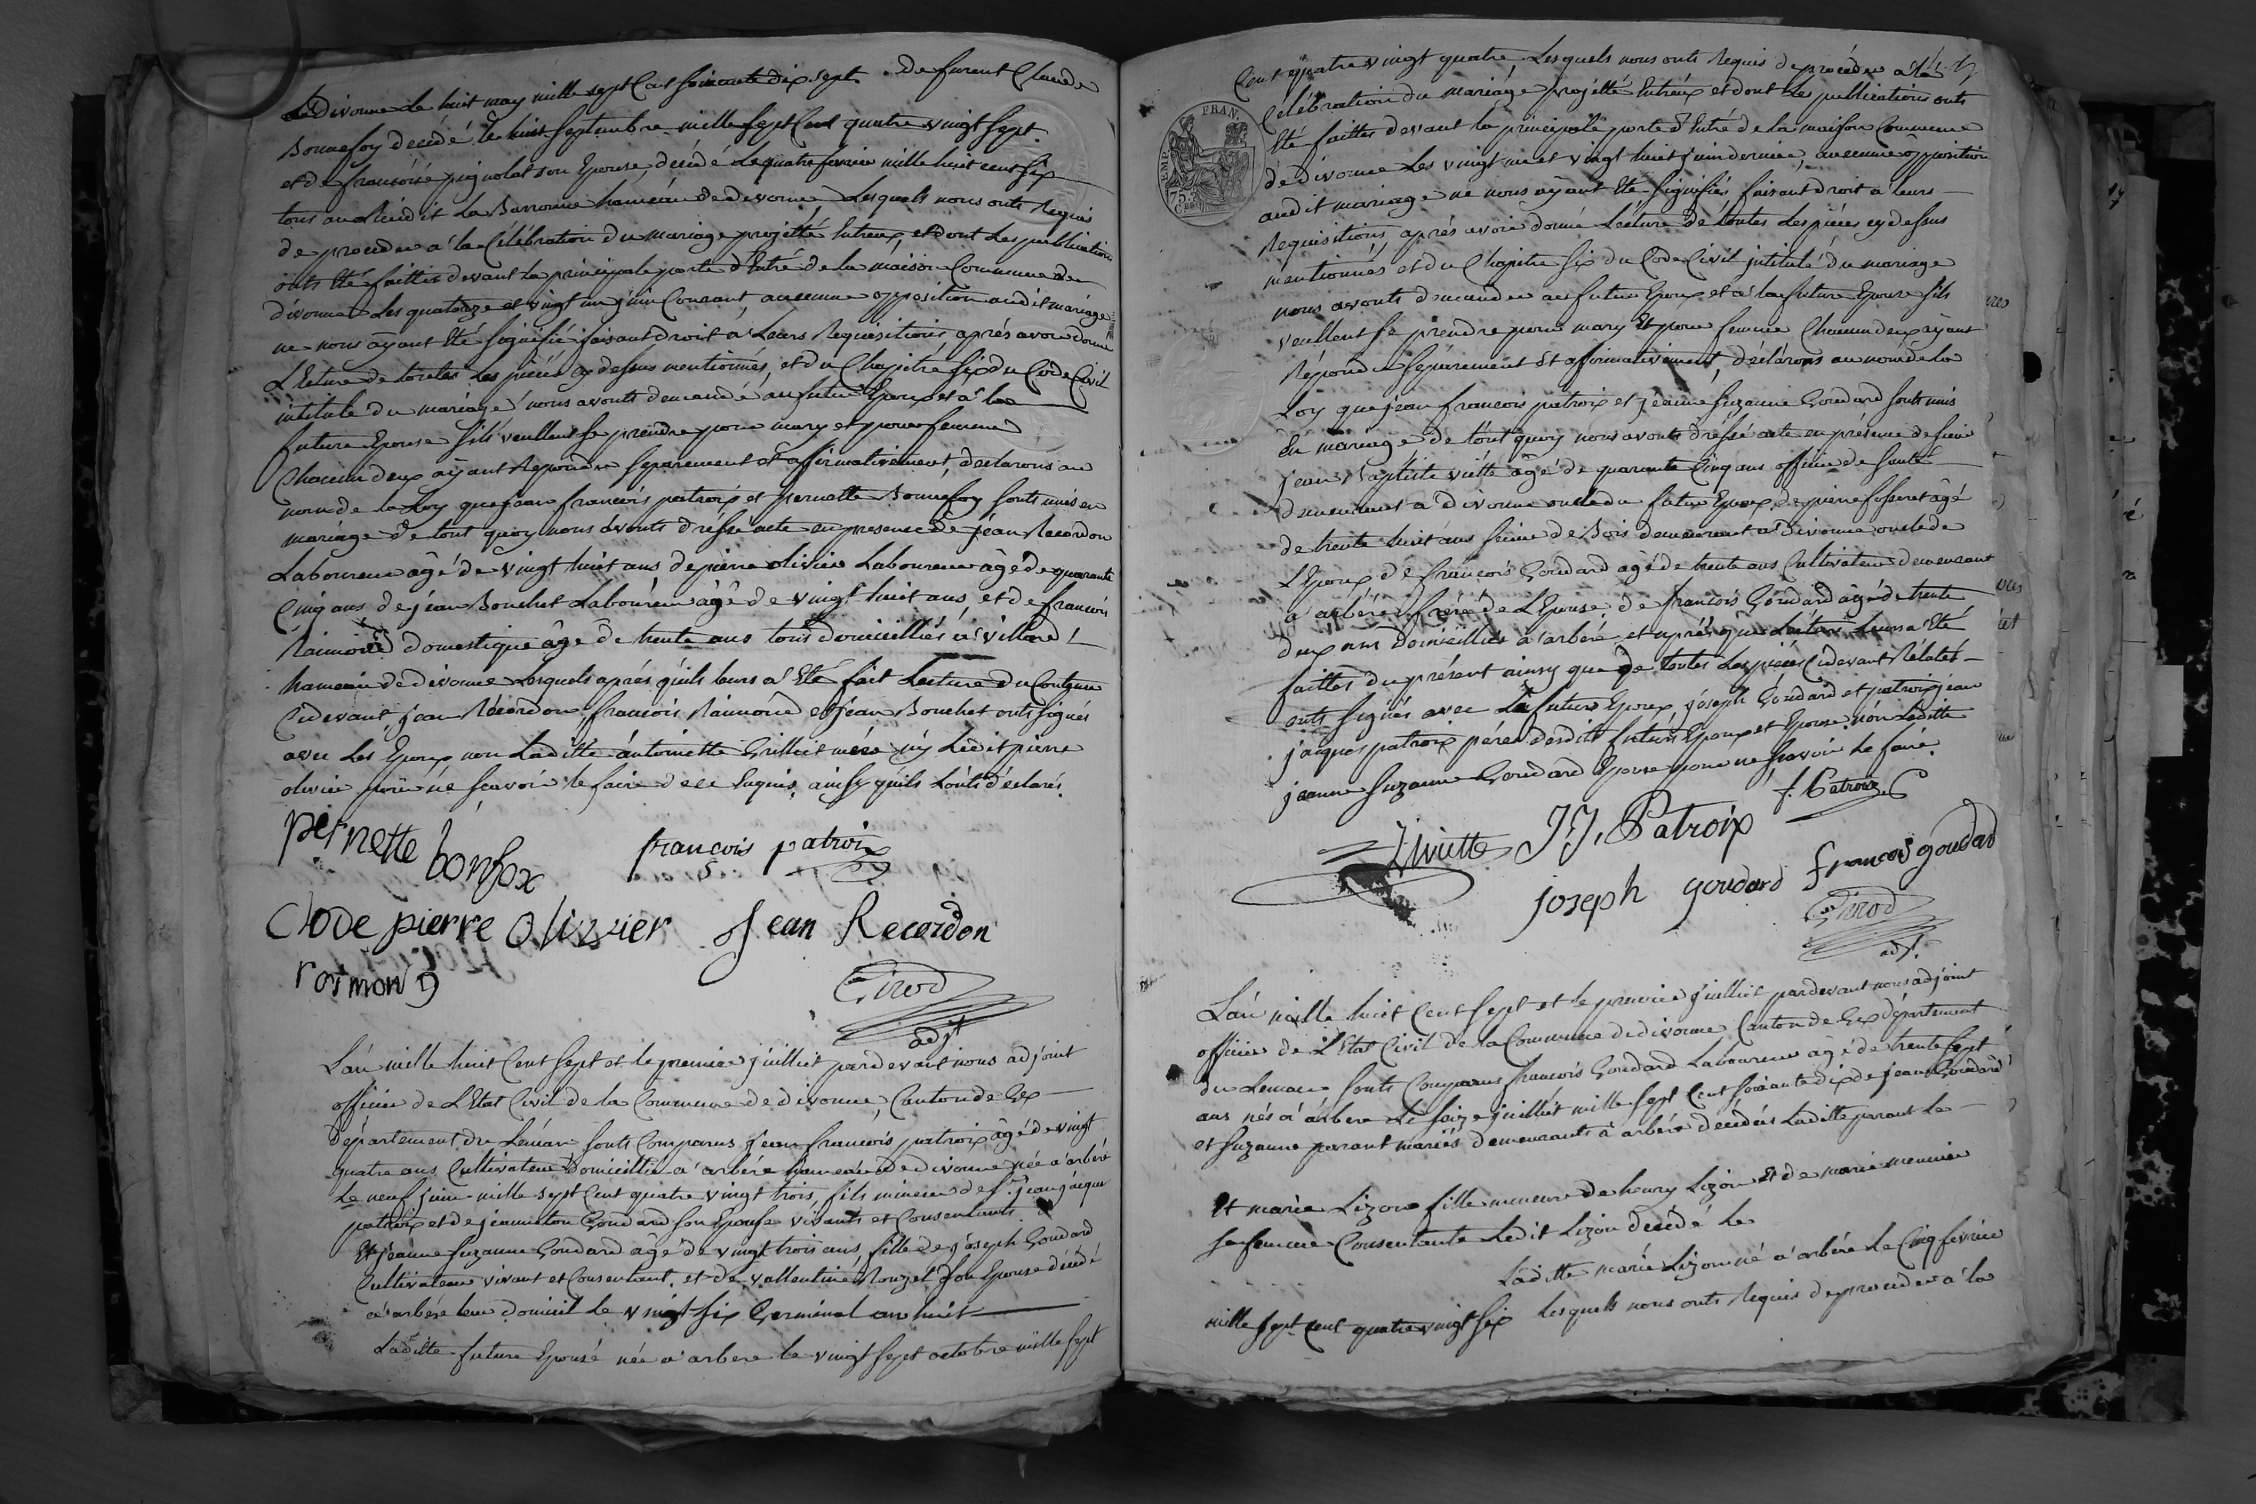 à Divonne le huit may mille sept Cent soixante dix sept. de furent Claude
Bonnefoy décédé le huit septembre mille sept Cent quatre vingt sept
et de francoise pignolat son Epouse, décédé le quatre fevrier mille huit cent six
tous au lieu dit La Barronne hameau de divonne, Lesquels nous onts Requis
de proceder a la Célébration du mariage projetté Entreux, et dont Les publications
onts Eté faittes devant la principale porte d'Entré de la maison Commune de
divonne Les quatorze et vingt un juin Courant, aucunne opposition audit mariage
ne nous ayant Eté signifié faisant droit a Leurs Requisitions aprés avoir donné
LEcture de touttes Les pieces cy dessus mentionnés, et du Chapitre six du Code Civil
intitulé du mariage nous avonts demandé au futur Epoux et a la
future Epouse sils veullent se prendre pour mary et pour femme
Chacun deux ayant Repondu separement et affirmativement, declarons au
nom de la Loy que jean francois patroix et pernette Bonnefoy sonts unis en
mariage de tout quoy nous avonts dressé acte en presence de jean Recordon
Laboureur agé de vingt huit ans de pierre olivier Laboureur agé de quarante
Cinq ans de jean Bouchet Laboureur agé de vingt huit ans et de francois
Raimond domestique agé de trente ans tous domicilliés a villard
hameau de divonne Lesquels aprés quils leurs a Eté fait Lecture du Contenu
Cidevant, jean Récordon, francois Raimond et jean Bouchet onts signés
avec Les Epoux non Laditte antoinette Grilliet mére ny Ledit pierre
olivier pour ne scavoir le faire de ce Enquis, ainsy quils Lonts déclaré.
pernette bonfox francois patroix
Clode pierre Olivier Jean Recordon
raimond Girod
adjt
L'an mille huit Cent sept et le premier juilliet pardevant nous adjoint
officier de L'Etat Civil de la Commune de divonne, Canton de Gex
département du Léman sonts Comparus jean francois patroix agé de vingt
quatre ans Cultivateur domicillié a arbére hameau de divonne née a arbére
Le neuf juin mille sept Cent quatre vingt trois, fils mineur de sr. jean jacques
patroix et de jeanneton Goudard son Epouse vivants et Consentants
Et jeanne suzanne Goudard agé de vingt trois ans, fille de joseph Goudard
Cultivateur vivant et Consentant, et de vallentine Rouzet son Epouse décédé
a arbére leur domicil le vingt six Germinal an huit
Laditte future Epouse née a arbere le vingt sept octobre mille sept
Cent quatre vingt quatre, Lesquels nous onts Requis de procéder a la
Celébration du mariage projetté Entreux et dont Les publications onts
Eté faittes devant la principale porte d'Entré de la maison Commune
de divonne Les vingt un et vingt huit juin dernier, aucunne opposition
audit mariage ne nous ayant Eté signifiés faisant droit a leurs
Requisitions, aprés avoir donné Lecture de toutes Les pieces cy dessus
mentionnés et du Chapitre six du Code Civil intitulé du mariage
nous avonts demander au futur Epoux et a la future Epouse sils
veullent se prendre pour mary Et pour femme Chacun deux ayant
Répondu separement Et affirmativement, déclarons au nom de la
Loy que jean francois patroix et jeanne suzanne Goudard sonts unis
En mariage de tout quoy nous avonts dressé acte en présence de sieur
jean Baptiste viette agé de quarante Cinq ans officier de santé
demeurant a divonne oncle du futur Epoux, de pierre fosseret agé
de trente huit ans de Bois demeurant a divonne oncle de
LEpoux, de francois Goudard agé de trente ans Cultivateur demeurant
a arbére frére de LEpouse, de francois Goudard agé de trente
deux ans domicilliés a arbére et aprés que Lecture leurs a Eté
faittes du présent ainsy que de toutes Les pieces Cidevant Rélatés
onts signés avec Le futur Epoux joseph Goudard et patroix jean
jacques patroix péres desdits futurs Epoux et Epouse, non Laditte
jeanne suzanne Goudard Epouse pour ne scavoir le faire.
FRAN.
EMP.
75.
Cen.
Jviette J J. Patroix f. Patroix
joseph goudard francois goudard
Girod
adj.
L'an mille huit Cent sept et le premier juilliet pardevant nous adjoint
officier de L'Etat Civil de la Commune de divonne Canton de Gex département
du Leman sonts Comparus francois Goudard Laboureur agé de trente sept
ans nés a arbere Le seize juilliet mille sept Cent soixante dix de jean Goudard
et suzanne parrant mariés demeurants a arbére decédés Laditte parrant Le
Et marie Lizon fille mineure de henry Lizon et de marie meunier
sa femme Consentante Ledit Lizon decédé Le
Laditte marie Lizon né a arbére Le Cinq fevrier
mille sept Cent quatre vingt six Lesquels nous onts Requis de proceder a la